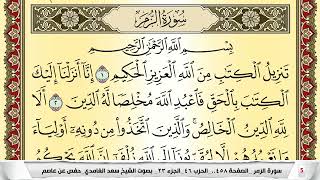 سُورَةُ الزُّمَرِ
بِسْمِ اللَّهِ الرَّحْمَٰنِ الرَّحِيمِ
تَنزِيلُ الْكِتَٰبِ مِنَ اللَّهِ الْعَزِيزِ الْحَكِيمِ ١ إِنَّا أَنزَلْنَا إِلَيْكَ
الْكِتَٰبَ بِالْحَقِّ فَاعْبُدِ اللَّهَ مُخْلِصًا لَّهُ الدِّينَ ٢ أَلَا
لِلَّهِ الدِّينُ الْخَالِصُ وَالَّذِينَ اتَّخَذُوا مِن دُونِهِ أَوْلِيَاءَ
مَا نَعْبُدُهُمْ إِلَّا لِيُقَرِّبُونَا إِلَى اللَّهِ زُلْفَىٰ إِنَّ اللَّهَ يَحْكُمُ
سورة الزمر الصفحة ٤٥٨... الحزب ٤٦ الجزء ٢٣ بصوت الشيخ سعد الغامدي حفص عن عاصم
5